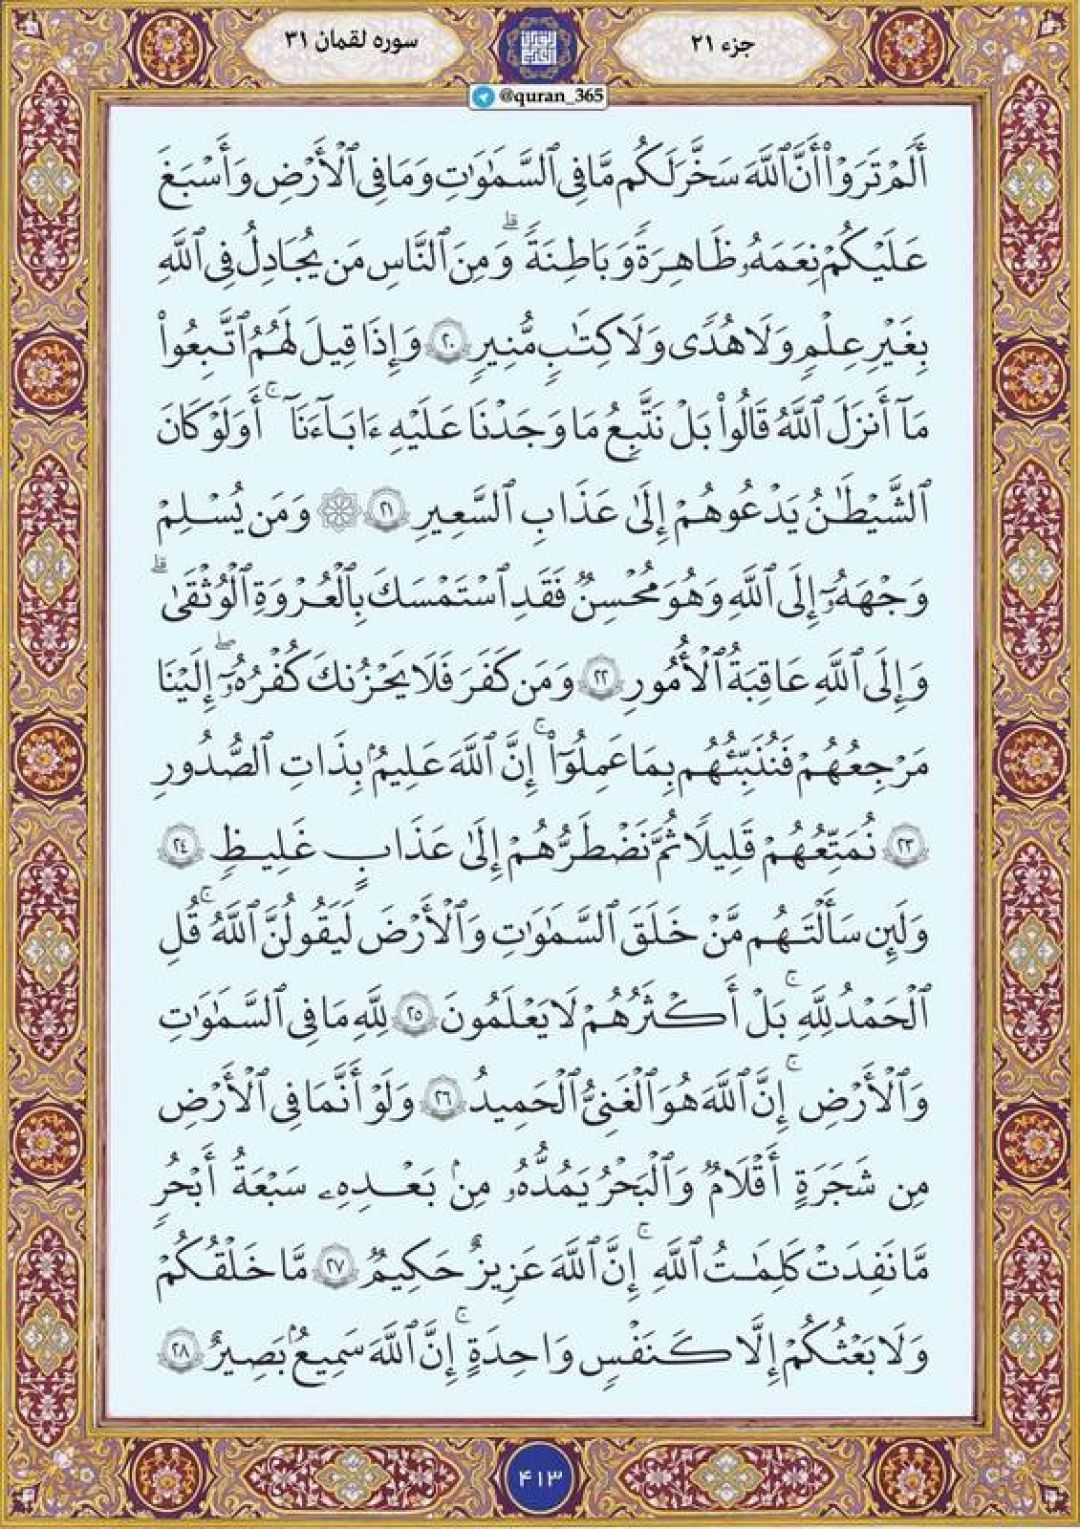 جزء ۲۱
سوره لقمان ۳۱
@quran_365
أَلَمْ تَرَوْا۟ أَنَّ ٱللَّهَ سَخَّرَ لَكُم مَّا فِى ٱلسَّمَٰوَٰتِ وَمَا فِى ٱلْأَرْضِ وَأَسْبَغَ
عَلَيْكُمْ نِعَمَهُۥ ظَٰهِرَةً وَبَاطِنَةً ۗ وَمِنَ ٱلنَّاسِ مَن يُجَٰدِلُ فِى ٱللَّهِ
بِغَيْرِ عِلْمٍ وَلَا هُدًى وَلَا كِتَٰبٍ مُّنِيرٍ ٢٠ وَإِذَا قِيلَ لَهُمُ ٱتَّبِعُوا۟
مَآ أَنزَلَ ٱللَّهُ قَالُوا۟ بَلْ نَتَّبِعُ مَا وَجَدْنَا عَلَيْهِ ءَابَآءَنَآ ۚ أَوَلَوْ كَانَ
ٱلشَّيْطَٰنُ يَدْعُوهُمْ إِلَىٰ عَذَابِ ٱلسَّعِيرِ ٢١ ۞ وَمَن يُسْلِمْ
وَجْهَهُۥٓ إِلَى ٱللَّهِ وَهُوَ مُحْسِنٌ فَقَدِ ٱسْتَمْسَكَ بِٱلْعُرْوَةِ ٱلْوُثْقَىٰ ۗ
وَإِلَى ٱللَّهِ عَٰقِبَةُ ٱلْأُمُورِ ٢٢ وَمَن كَفَرَ فَلَا يَحْزُنكَ كُفْرُهُۥٓ ۖ إِلَيْنَا
مَرْجِعُهُمْ فَنُنَبِّئُهُم بِمَا عَمِلُوٓا۟ ۚ إِنَّ ٱللَّهَ عَلِيمٌۢ بِذَاتِ ٱلصُّدُورِ
٢٣ نُمَتِّعُهُمْ قَلِيلًا ثُمَّ نَضْطَرُّهُمْ إِلَىٰ عَذَابٍ غَلِيظٍ ٢٤
وَلَئِن سَأَلْتَهُم مَّنْ خَلَقَ ٱلسَّمَٰوَٰتِ وَٱلْأَرْضَ لَيَقُولُنَّ ٱللَّهُ ۚ قُلِ
ٱلْحَمْدُ لِلَّهِ ۚ بَلْ أَكْثَرُهُمْ لَا يَعْلَمُونَ ٢٥ لِلَّهِ مَا فِى ٱلسَّمَٰوَٰتِ
وَٱلْأَرْضِ ۚ إِنَّ ٱللَّهَ هُوَ ٱلْغَنِىُّ ٱلْحَمِيدُ ٢٦ وَلَوْ أَنَّمَا فِى ٱلْأَرْضِ
مِن شَجَرَةٍ أَقْلَٰمٌ وَٱلْبَحْرُ يَمُدُّهُۥ مِنۢ بَعْدِهِۦ سَبْعَةُ أَبْحُرٍ
مَّا نَفِدَتْ كَلِمَٰتُ ٱللَّهِ ۗ إِنَّ ٱللَّهَ عَزِيزٌ حَكِيمٌ ٢٧ مَّا خَلْقُكُمْ
وَلَا بَعْثُكُمْ إِلَّا كَنَفْسٍ وَٰحِدَةٍ ۗ إِنَّ ٱللَّهَ سَمِيعٌۢ بَصِيرٌ ٢٨
۴۱۳